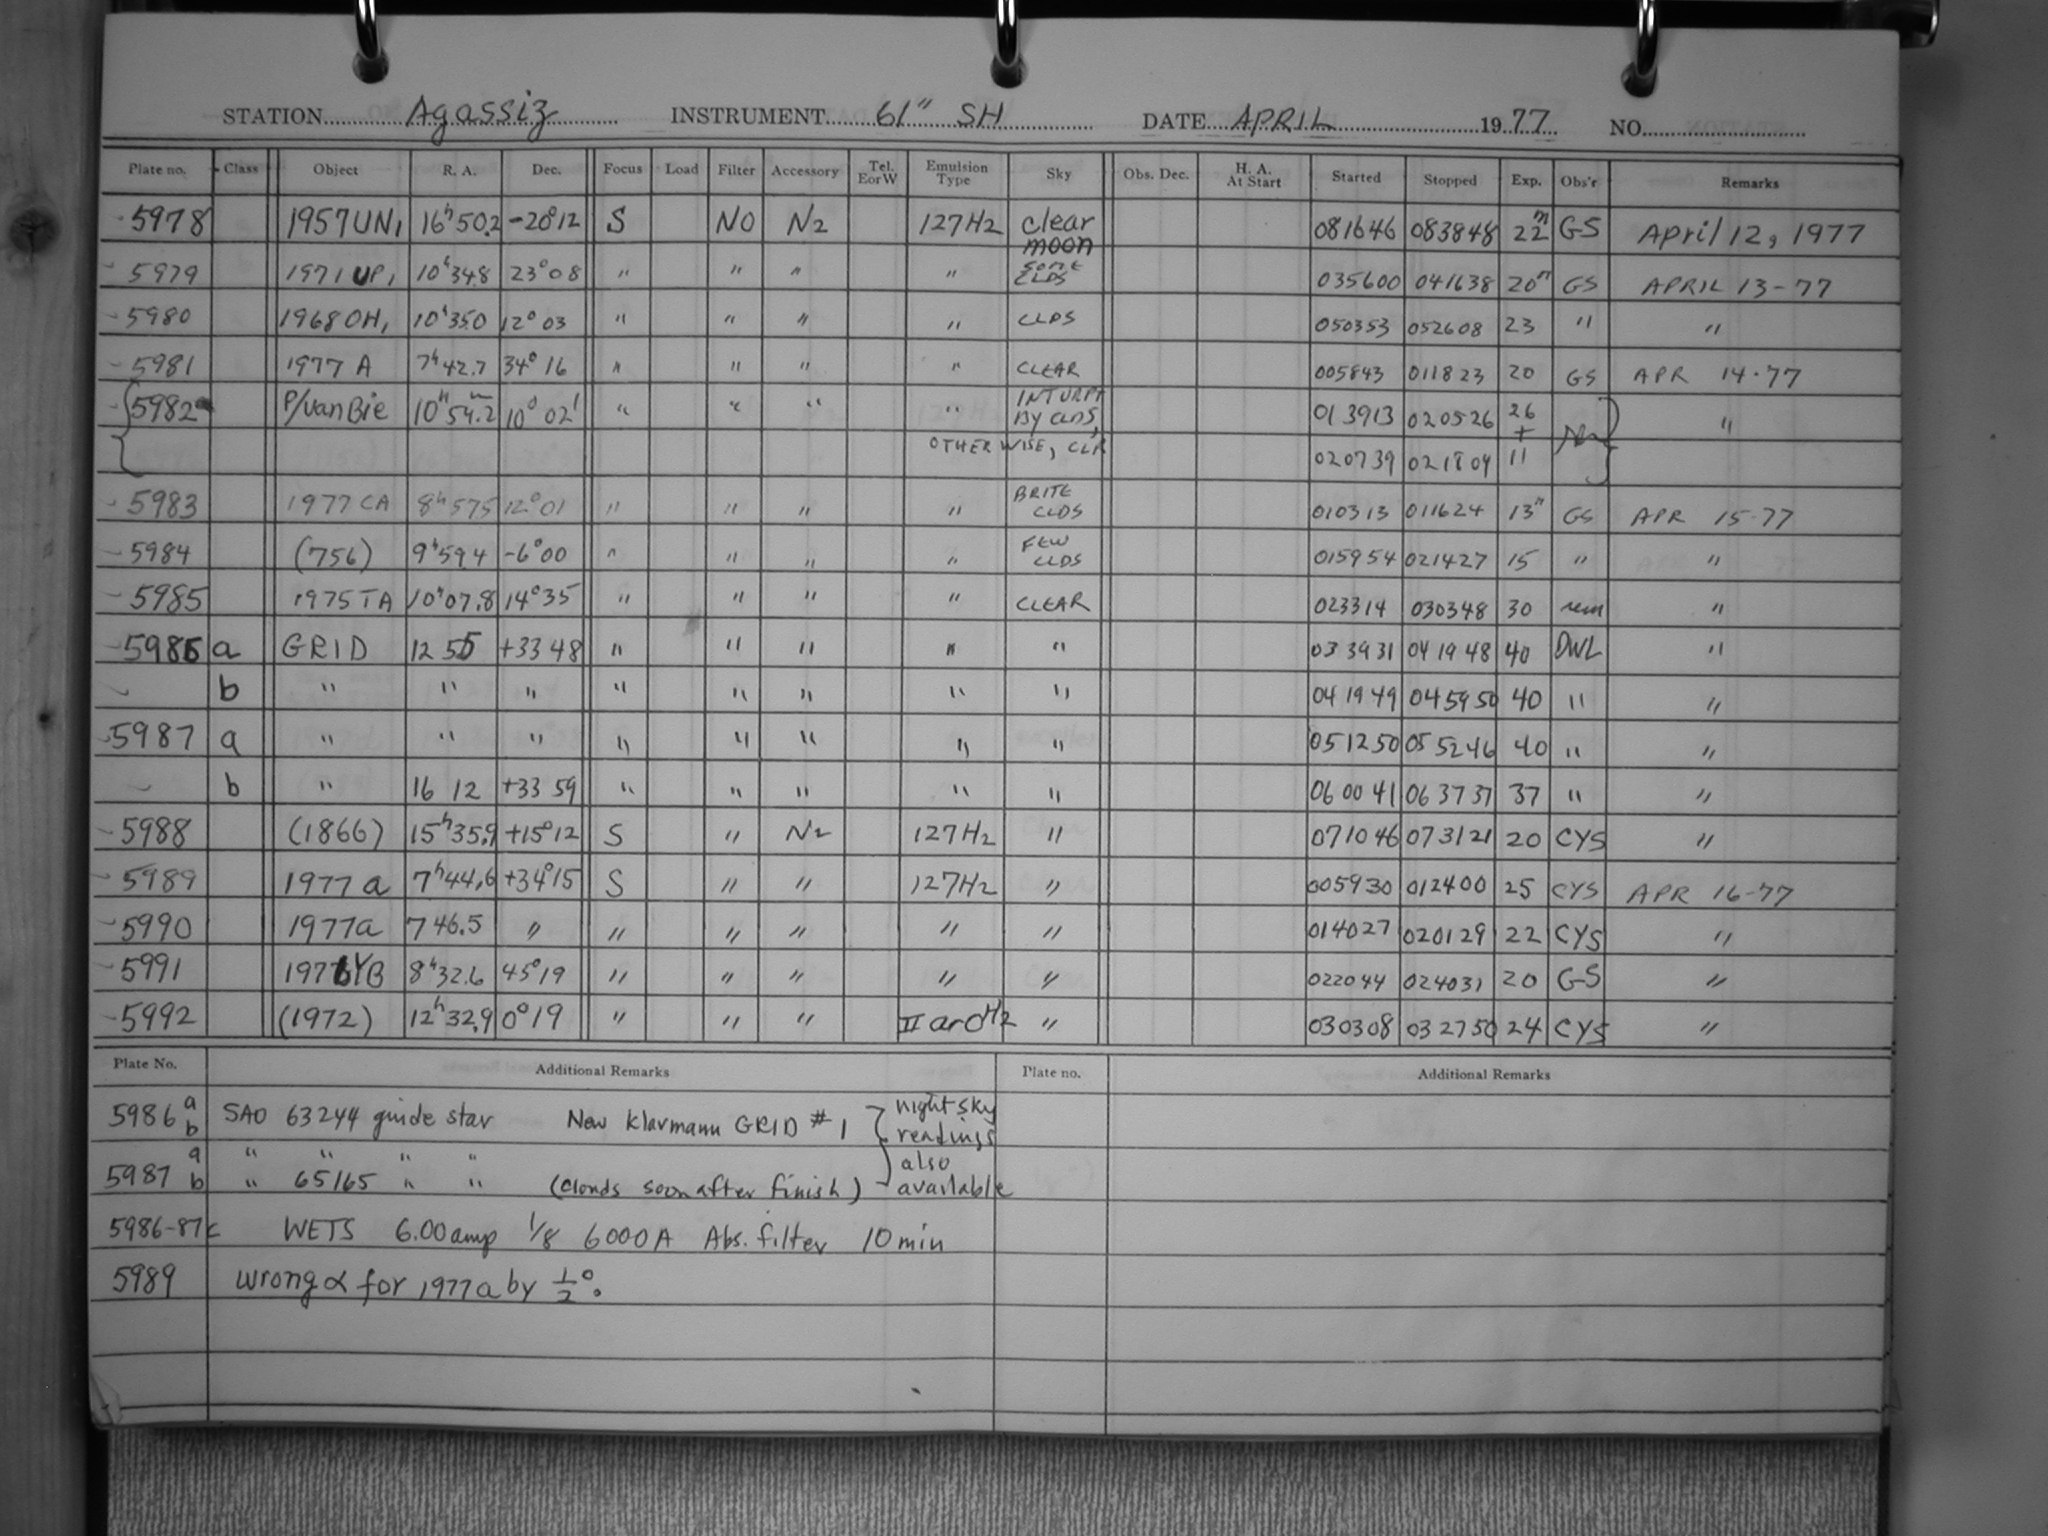 STATION Agassiz INSTRUMENT 61" SH DATE APRIL 1977 NO.
Plate no. Class Object R. A. Dec. Focus Load Filter Accessory Tel. E or W Emulsion Type Sky Obs. Dec. H. A. At Start Started Stopped Exp. Obs'r Remarks
5978 1957UN, 16ʰ50.2 -20°12 S NO N2 127H2 clear moon 081646 083848 22ᵐ GS April 12, 1977
5979 1971UP, 10ʰ34.8 23°08 " " " " some CLDS 035600 041638 20ᵐ GS APRIL 13-77
5980 1968OH, 10ʰ350 12°03 " " " " CLDS 050353 052608 23 " "
5981 1977 A 7ʰ42.7 34°16 " " " " CLEAR 005843 011823 20 GS APR 14-77
5982 P/VanBie 10ʰ54.2ᵐ 10°02' " " " " INTURPT BY CLDS, 013913 020526 26 + "
OTHERWISE, CLR 020739 021804 11
5983 1977 CA 8ʰ575 12°01 " " " " BRITE CLDS 010313 011624 13ᵐ GS APR 15-77
5984 (756) 9ʰ594 -6°00 " " " " FEW CLDS 015954 021427 15 " "
5985 1975TA 10ʰ07.8 14°35 " " " " CLEAR 023314 030348 30 rem "
5986 a GRID 12 55 +33 48 " " " " " 033931 041948 40 DWL "
b " " " " " " " " 041949 045950 40 " "
5987 a " " " " " " " " 051250 055246 40 " "
b " 16 12 +33 59 " " " " " 060041 063737 37 " "
5988 (1866) 15ʰ35.9 +15°12 S " N2 127H2 " 071046 073121 20 CYS "
5989 1977a 7ʰ44.6 +34°15 S " " 127H2 " 005930 012400 25 CYS APR 16-77
5990 1977a 7 46.5 " " " " " " 014027 020129 22 CYS "
5991 1976YB 8ʰ32.6 45°19 " " " " " 022044 024031 20 GS "
5992 (1972) 12ʰ32.9 0°19 " " " II aO H2 " 030308 032750 24 CYS "
Plate No. Additional Remarks Plate no. Additional Remarks
5986 a b SAO 63244 guide star New Klarmann GRID #1 night sky readings
5987 a " " " "
b " 65165 " " (clouds soon after finish) also available
5986-87c WETS 6.00amp 1/8 6000A Abs. filter 10 min
5989 wrong α for 1977a by 1/2°.